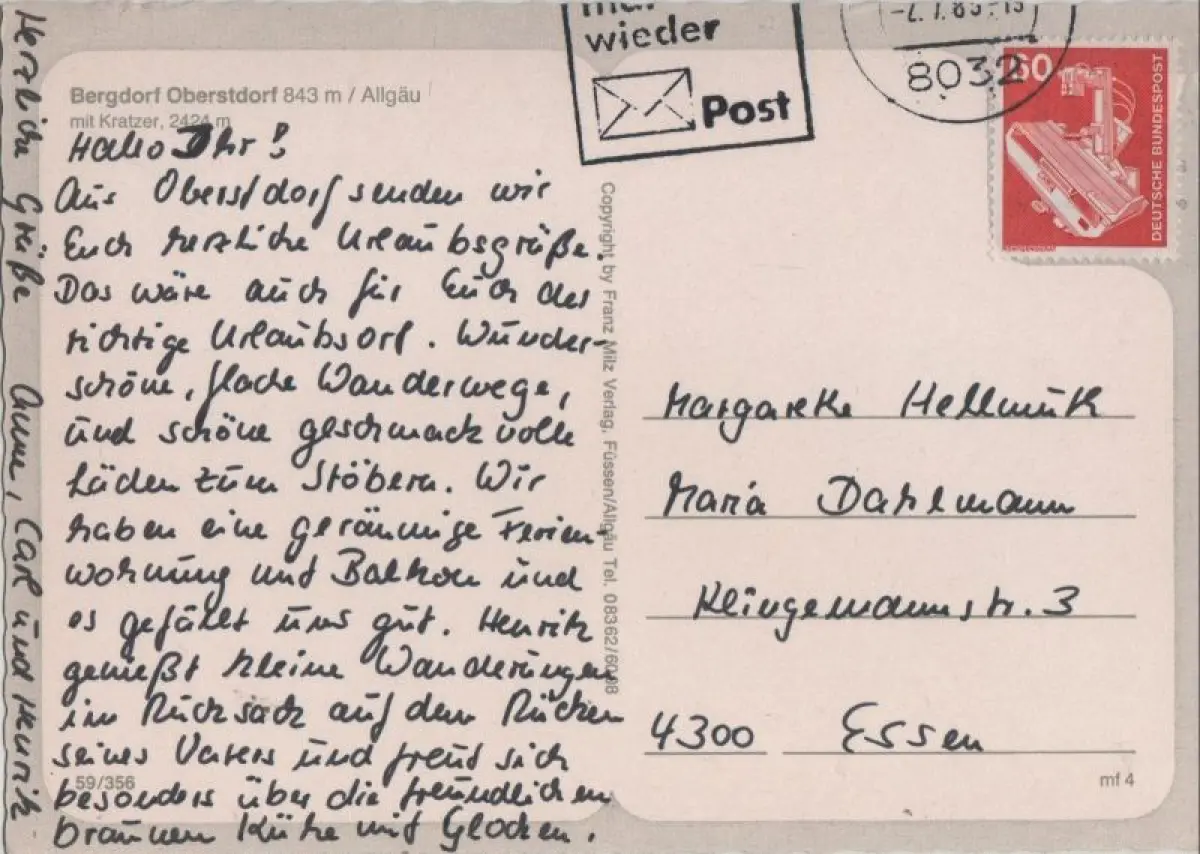 Bergdorf Oberstdorf 843 m / Allgäu
mit Kratzer, 2424 m
Hallo Ihr!
Aus Oberstdorf senden wir
Euch herzliche Urlaubsgrüße.
Das wäre auch für Euch der
richtige Urlaubsort. Wunder-
schöne, flache Wanderwege,
und schöne geschmackvolle
Läden zum Stöbern. Wir
haben eine geräumige Ferien-
wohnung mit Balkon und
es gefällt uns gut. Henrik
genießt kleine Wanderungen
im Rucksack auf dem Rücken
seines Vaters und freut sich
besonders über die freundlichen
braunen Kühe mit Glocken.
Herzliche Grüße Anne, Carl und Henrik
59/356
Copyright by Franz Milz Verlag, Füssen/Allgäu Tel. 08362/6098
mal
wieder
Post
8032
60
DEUTSCHE BUNDESPOST
Margarethe Hellmuth
Maria Dahlmann
Klingemannstr. 3
4300 Essen
mf 4